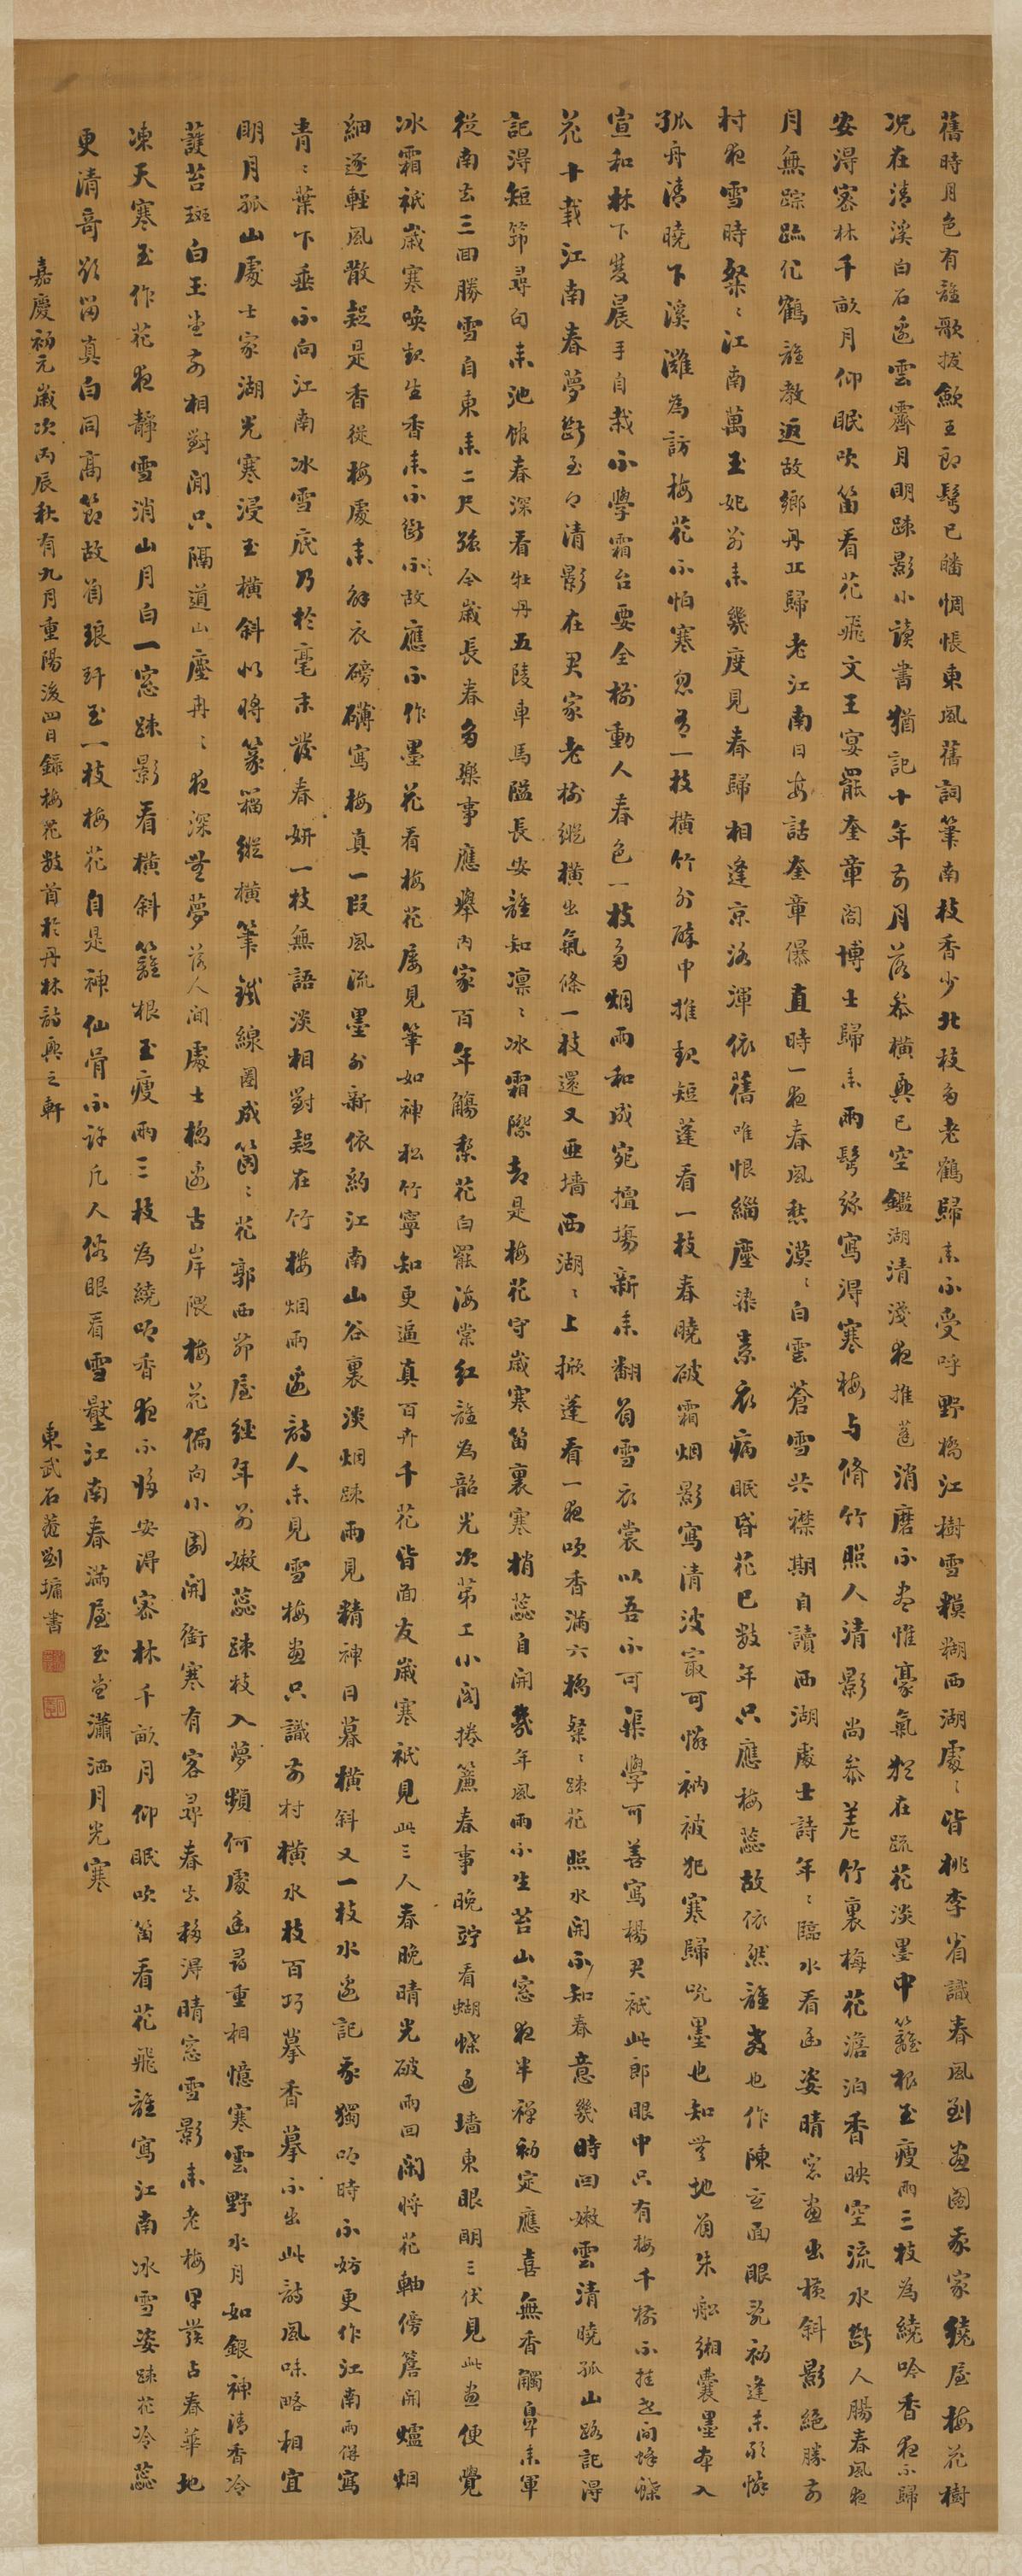 舊時月色有誰歌拔歛王郎鬢已皤惆悵東風舊詞筆南枝香少北枝多老鶴歸來不受呼野橋江樹雪糢糊西湖處〻皆桃李省識春風到畫圖我家繞屋梅花樹
况在清溪白石邊雲霽月明踈影小讀書猶記十年前月落參橫興已空鑑湖清淺夜推篷消磨不盡惟豪氣猶在疏花淡墨中籬根玉瘦兩三枝為繞吟香夜不歸
安得密林千畝月仰眠吹笛看花飛文王宴罷奎章閣博士歸來兩鬢絲寫得寒梅与脩竹照人清影尚參差竹裏梅花澹泊香映空流水斷人腸春風夜
月無踪跡化鶴誰教返故鄉丹丘歸老江南日每話奎章儤直時一夜春風愁漠〻白雲蒼雪共襟期自讀西湖處士詩年〻臨水看幽姿晴窓畫出橫斜影絕勝前
村夜雪時粲〻江南萬玉妃別來幾度見春歸相逢京洛渾依舊唯恨緇塵染素衣病眠昏花已數年只應梅蕊故依然誰教也作陳玄面眼亂初逢未敢憐
孤舟清曉下溪灘為訪梅花不怕寒忽有一枝橫竹外醉中推起短蓬看一枝春曉破霜烟影寫清波最可憐衲被犯寒歸吮墨也知無地着朱鉛緗囊墨本入
宣和林下雙晨手自栽不學霜台要全樹動人春色一枝多烟雨和成宛擅塲新來翻着雪衣裳以吾不可渠學可善寫楊君祇此郎眼中只有梅千樹不挂世間蜂蝶
花十載江南春夢斷玉人清影在君家老樹縱橫出氣條一枝還又亞墻西湖〻上掀蓬看一夜吹香滿六橋粲〻踈花照水開不知春意幾時回嫩雲清曉孤山路記得
記得短筇尋句來池館春深看牡丹五陵車馬隘長安誰知凛〻冰霜際卻是梅花守歲寒笛裏寒梢蕊自開幾年風雨不生苔山窓夜半禪初定應喜無香觸鼻來軍
從南去三回勝雪自東來二尺強今歲長春多樂事應擧內家百年觴梨花白罷海棠紅誰為韶光次第工小閣捲簾春事晚貯看蝴蝶過墻東眼明三伏見此畫便覺
冰霜祇歲寒喚起生香來不斷故應不作墨花看梅花屢見筆如神松竹寧知更逼真百卉千花皆面友歲寒祇見此三人春晚晴光破雨回閑將花軸傍簷開爐烟
細逐輕風散疑是香從梅處來解衣磅礴寫梅真一段風流墨外新依約江南山谷裏淡烟踈雨見精神日暮橫斜又一枝水邊記我獨吟時不妨更作江南雨併寫
青〻葉下垂不向江南冰雪底乃於毫末發春妍一枝無語淡相對疑在竹樓烟雨邊詩人未見雪梅畫只識前村橫水枝百巧摹香摹不出此詩風味略相宜
明月孤山處士家湖光寒浸玉橫斜似將篆籀縱橫筆鐵線圈成箇〻花郭西茆屋經年別嫩蕊踈枝入夢頻何處幽尋重相憶寒雲野水月如銀神清香冷
護苔斑白玉堂前相對閒只隔道山塵冉〻夜深無夢落人間處士橋邊古岸隈梅花偏向小園開銜寒有客尋春去移得晴窓雪影來老梅早發占春華地
凍天寒玉作花夜靜雪消山月白一窓踈影看橫斜籬根玉瘦兩三枝為繞吟香夜不歸安得密林千畝月仰眠吹笛看花飛誰寫江南冰雪姿踈花冷蕊
更清奇歲留真白同高節故着琅玕玉一枝梅花自是神仙骨不許凡人俗眼看雪壓江南春滿屋玉堂瀟洒月光寒
嘉慶初元歲次丙辰秋有九月重陽後四日錄梅花數首於丹林詩興之軒
東武石菴劉墉書